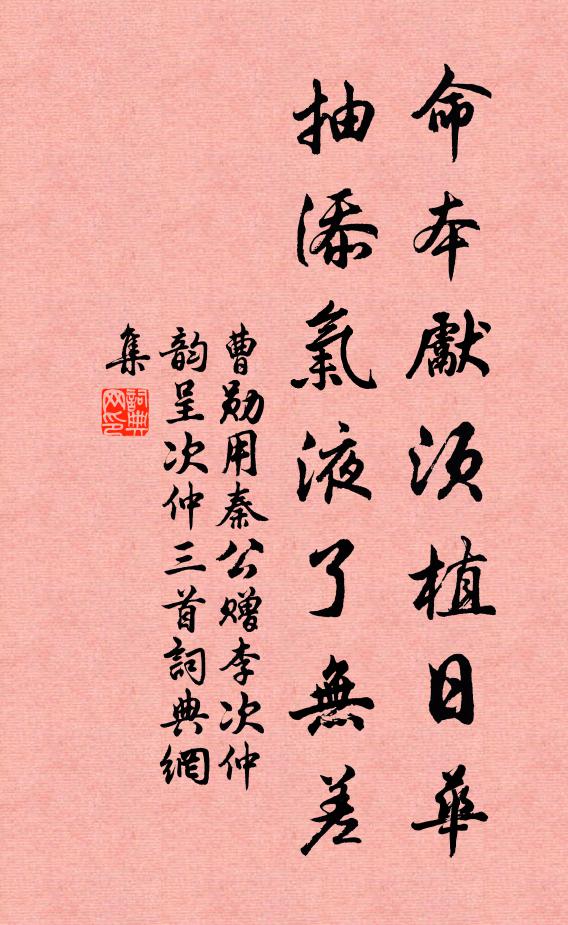 命本獻須植日華
抽添氣液了無差
曹勛用秦公贈李次仲
韵呈次仲三首詞典網
集
詞典网印